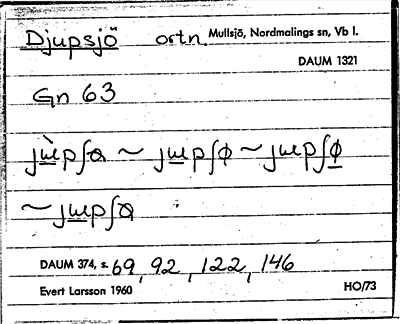 Djupsjö ortn. Mullsjö, Nordmalings sn, Vb l.
DAUM 1321
Gn 63
~ ~
~
DAUM 374, s. 69, 92, 122, 146
Evert Larsson 1960 HO/73